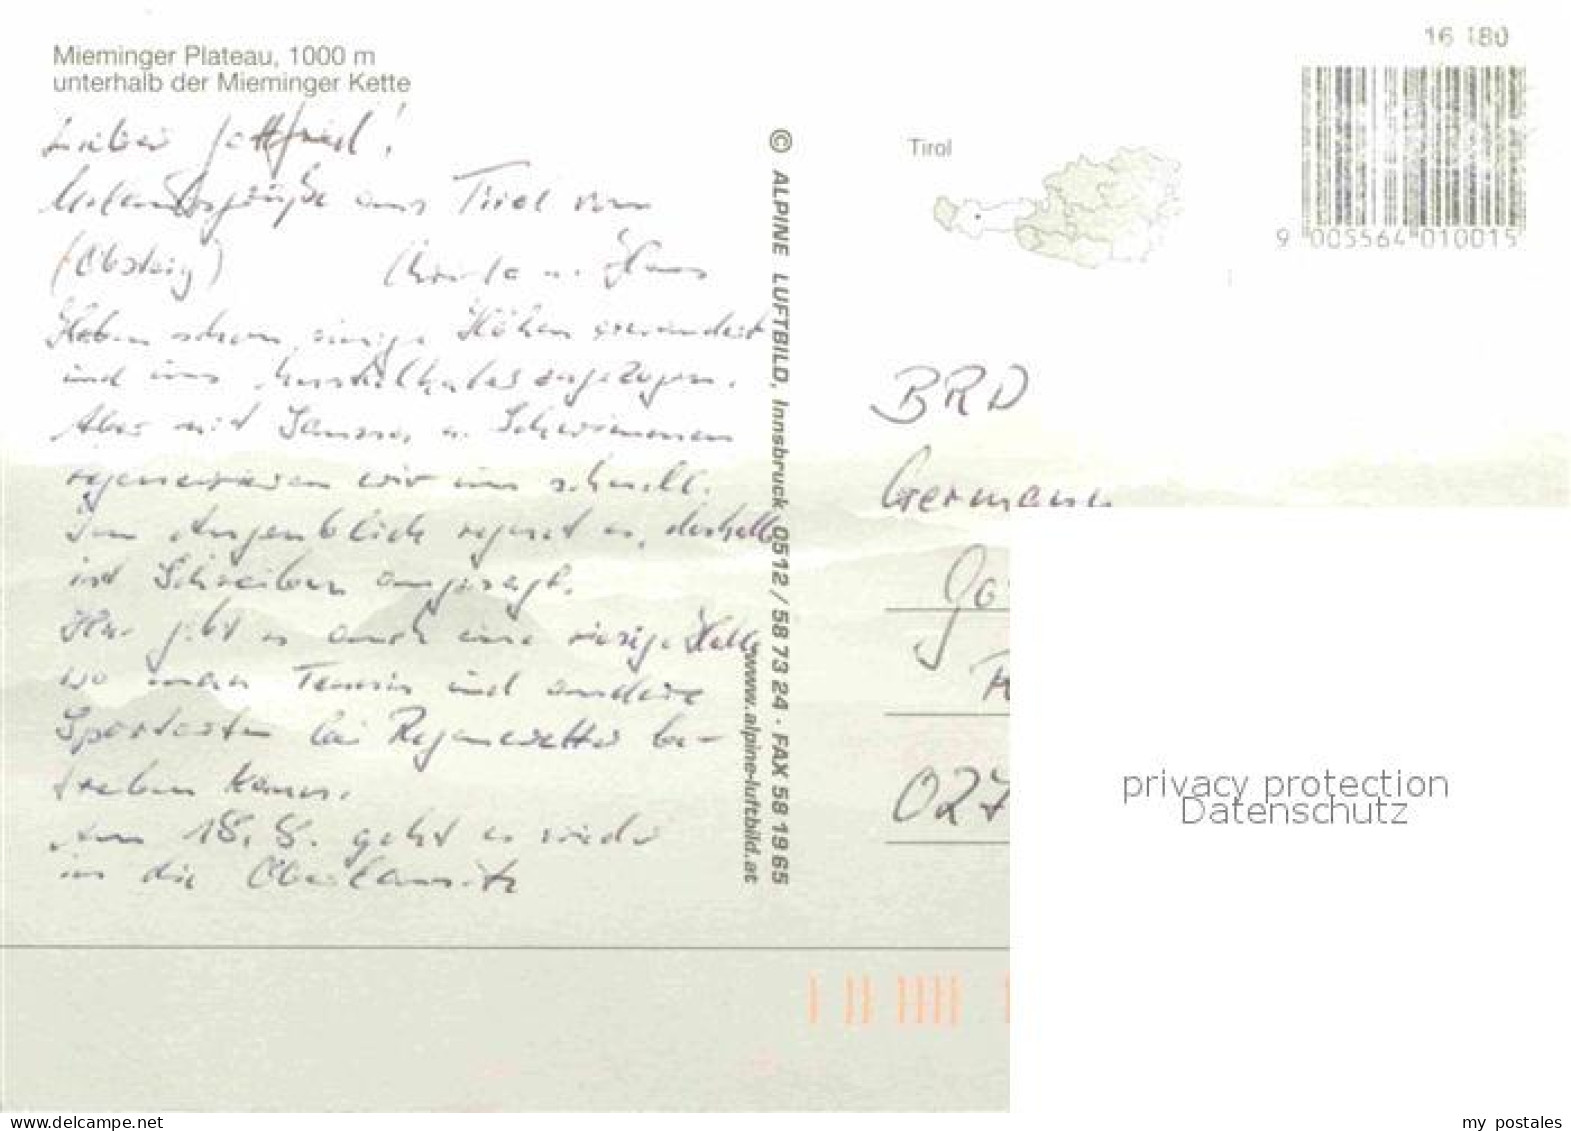 Mieminger Plateau, 1000 m
unterhalb der Mieminger Kette
Lieber Gottfried!
Urlaubsgrüße aus Tirol von
(Obsteig) Christa u. Hans
Haben schon einige Höhen erwandert
und uns Muskelkater zugezogen.
Aber mit Sauna u. Schwimmen
regenerieren wir uns schnell.
Im Augenblick regnet es, deshalb
ist Schreiben angesagt.
Hier gibt es auch eine riesige Halle,
wo man Tennis und andere
Sportarten bei Regenwetter be-
treiben kann.
Am 18.8. geht es wieder
in die Oberlausitz
© ALPINE LUFTBILD, Innsbruck, 0512 / 58 73 24 · FAX 58 19 65
www.alpine-luftbild.at
Tirol
16 180
9 005564 010015
BRD
Germany
027
privacy protection
Datenschutz
www.delcampe.net
my_postales